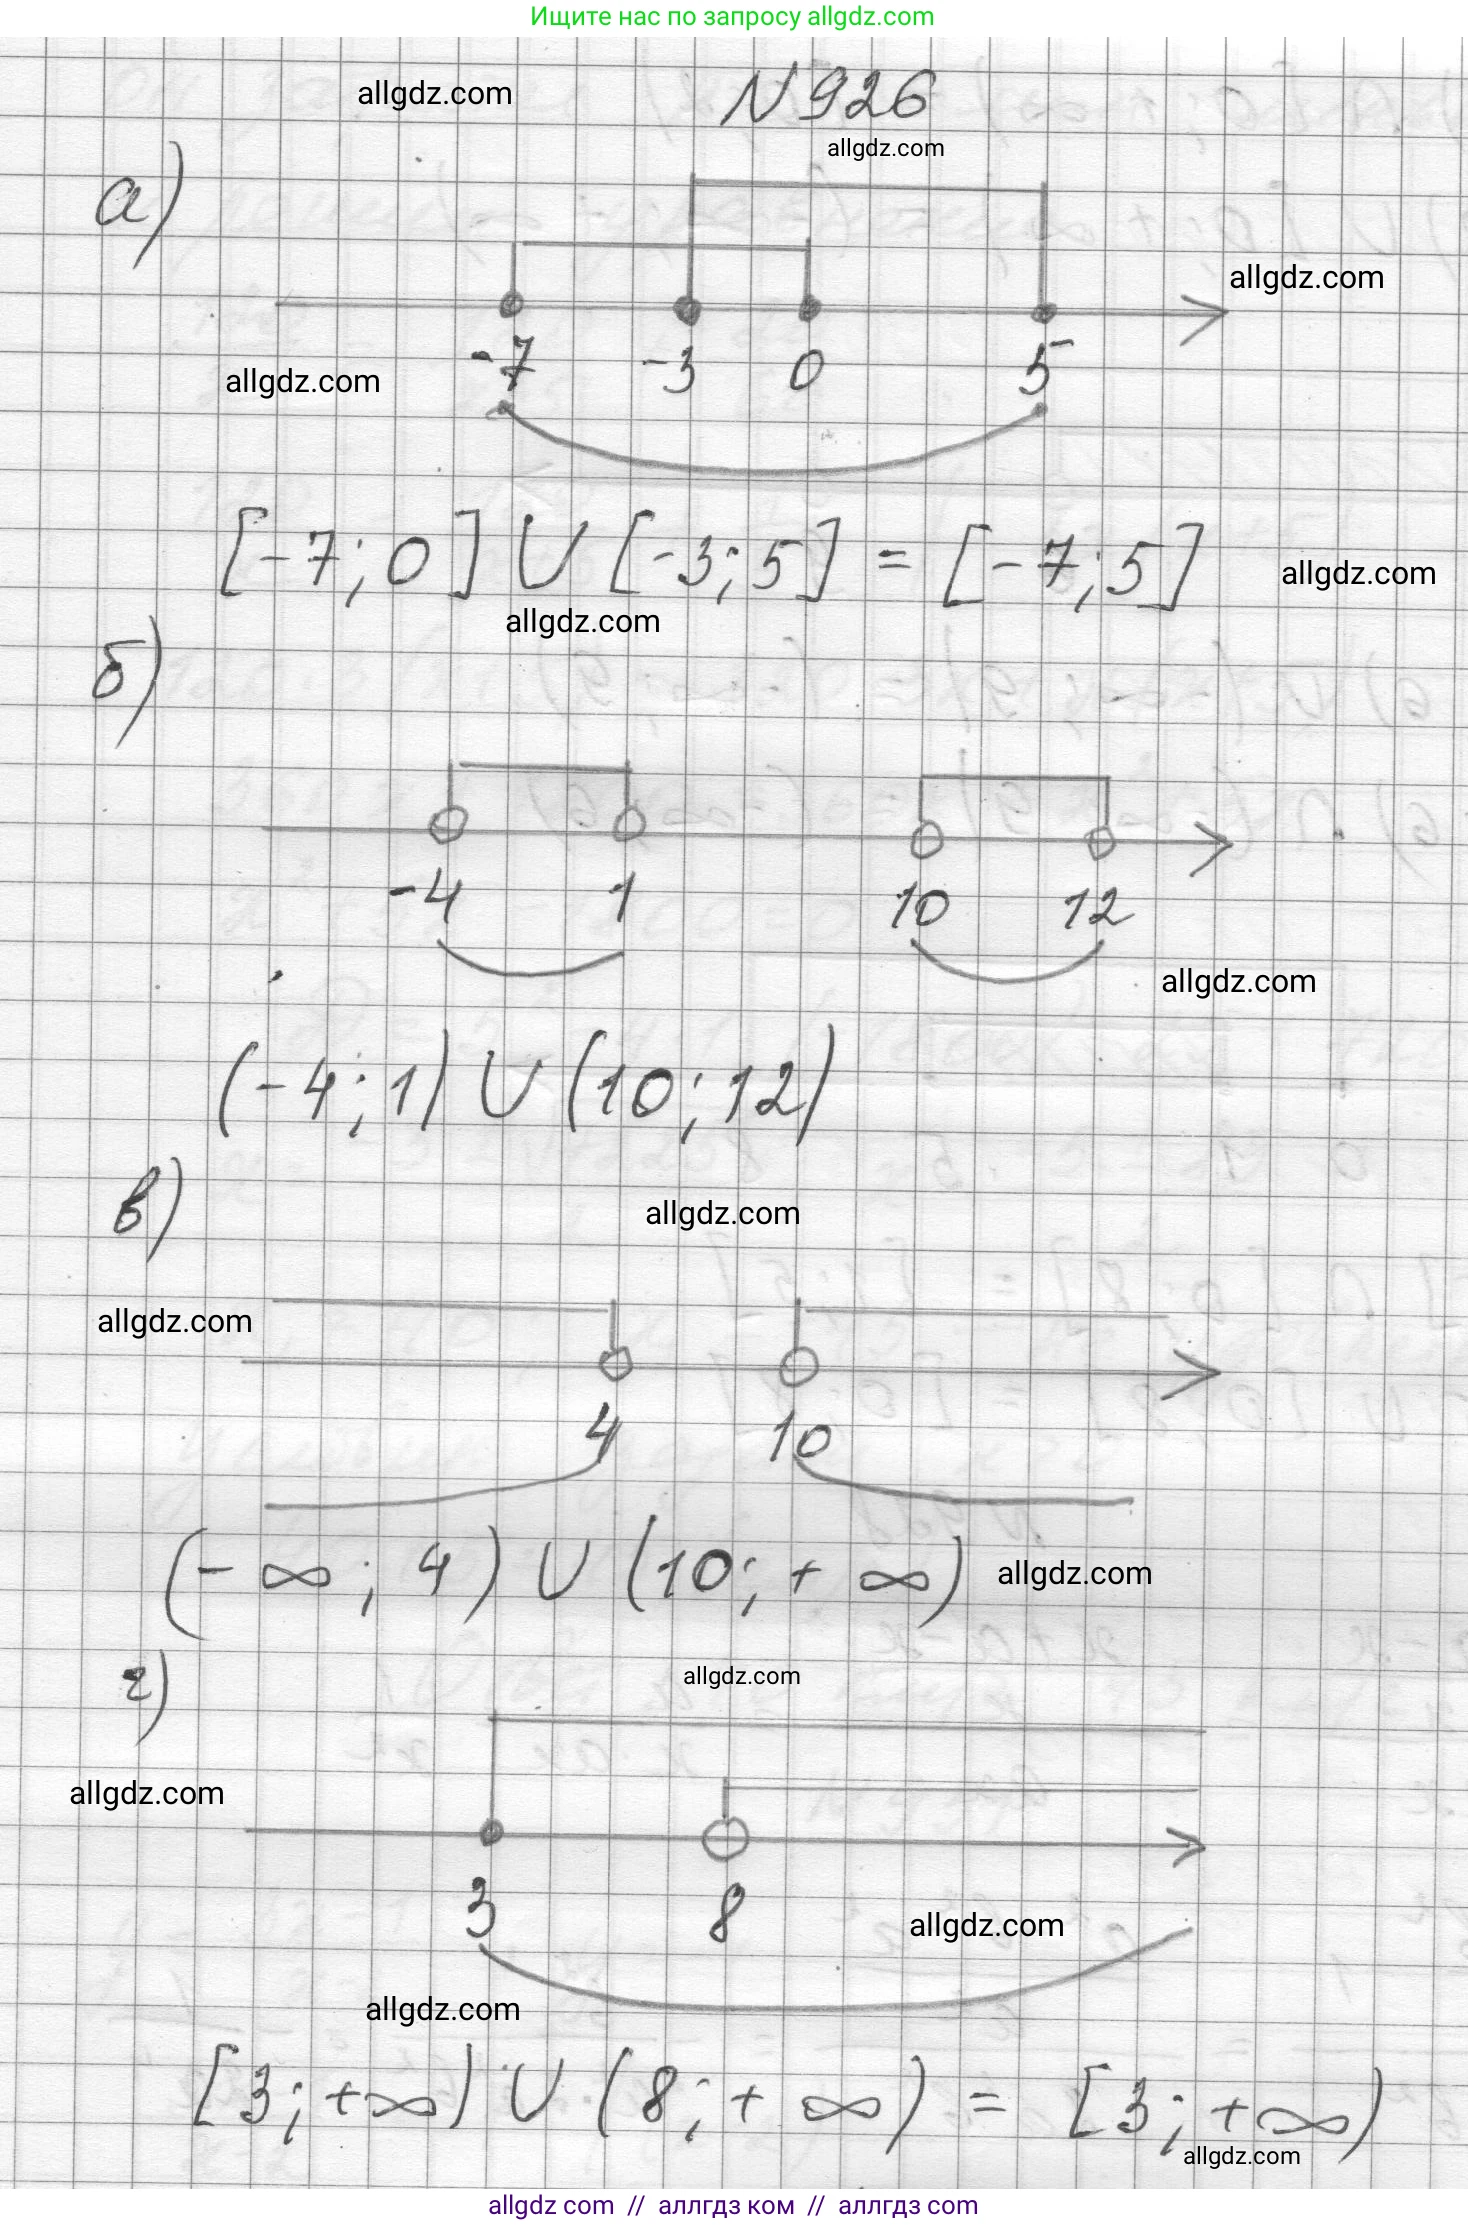 Ищите нас по запросу allgdz.com
allgdz.com
N 926
allgdz.com
а)
allgdz.com
-7 -3 0 5
allgdz.com
[-7; 0] ∪ [-3; 5] = [-7; 5]
allgdz.com
allgdz.com
б)
-4 1 10 12
allgdz.com
(-4; 1) ∪ (10; 12)
в)
allgdz.com
allgdz.com
4 10
(-∞; 4) ∪ (10; +∞)
allgdz.com
г)
allgdz.com
allgdz.com
3 8
allgdz.com
allgdz.com
[3; +∞) ∪ (8; +∞) = [3; +∞)
allgdz.com
allgdz com // аллгдз ком // аллгдз com